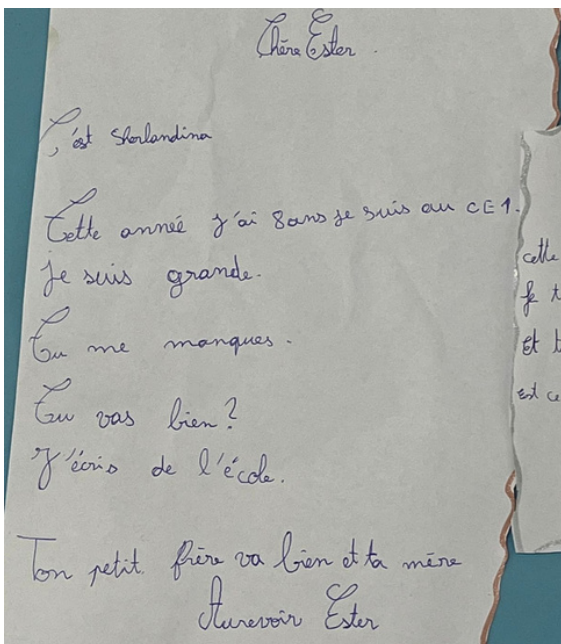 Chère Ester.
C'est Sherlandina
Cette année j'ai 8ans je suis au CE1.
je suis grande.
Tu me manques.
Tu vas bien?
J'écris de l'école.
Ton petit frère va bien et ta mère
Aurevoir Ester
cette
et
est ce